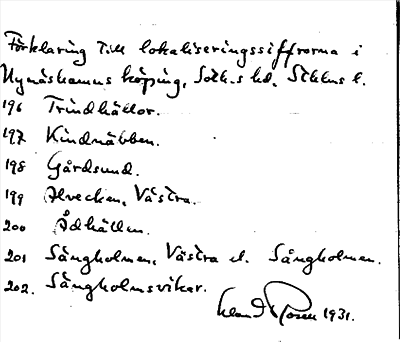 Förklaring till lokaliseringssiffrorna i
Nynäshamns köping, Soth.s hd. Sthlms l.
196 Trindhällor.
197 Kindnäbben.
198 Gårdsund.
199 Alvecken, Västra.
200 Ådhällen.
201 Sångholmen, Västra el. Sångholmen.
202. Sångholmsviken.
1931.